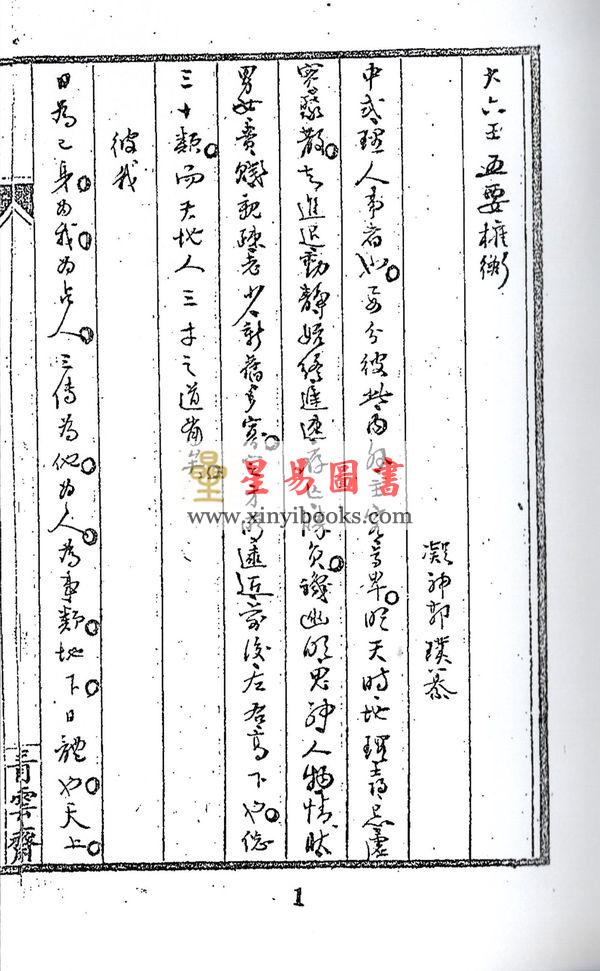 大六壬五要權衡
凝神郭璞纂
中式理人事者也要分彼此內外主客尊卑明天時地理喜忌虛
實聚散去進退動靜始終進速存亡勝負禍幽明鬼神人物情狀
男女貴賤親疎老少新舊多寡方所遠近前後左右高下也總
三十類而天地人三才之道備矣
彼我
日為己身為我為占人三傳為他為人為事類地下日體也天上
青雲齋
星易圖書
www.xinyibooks.com
1